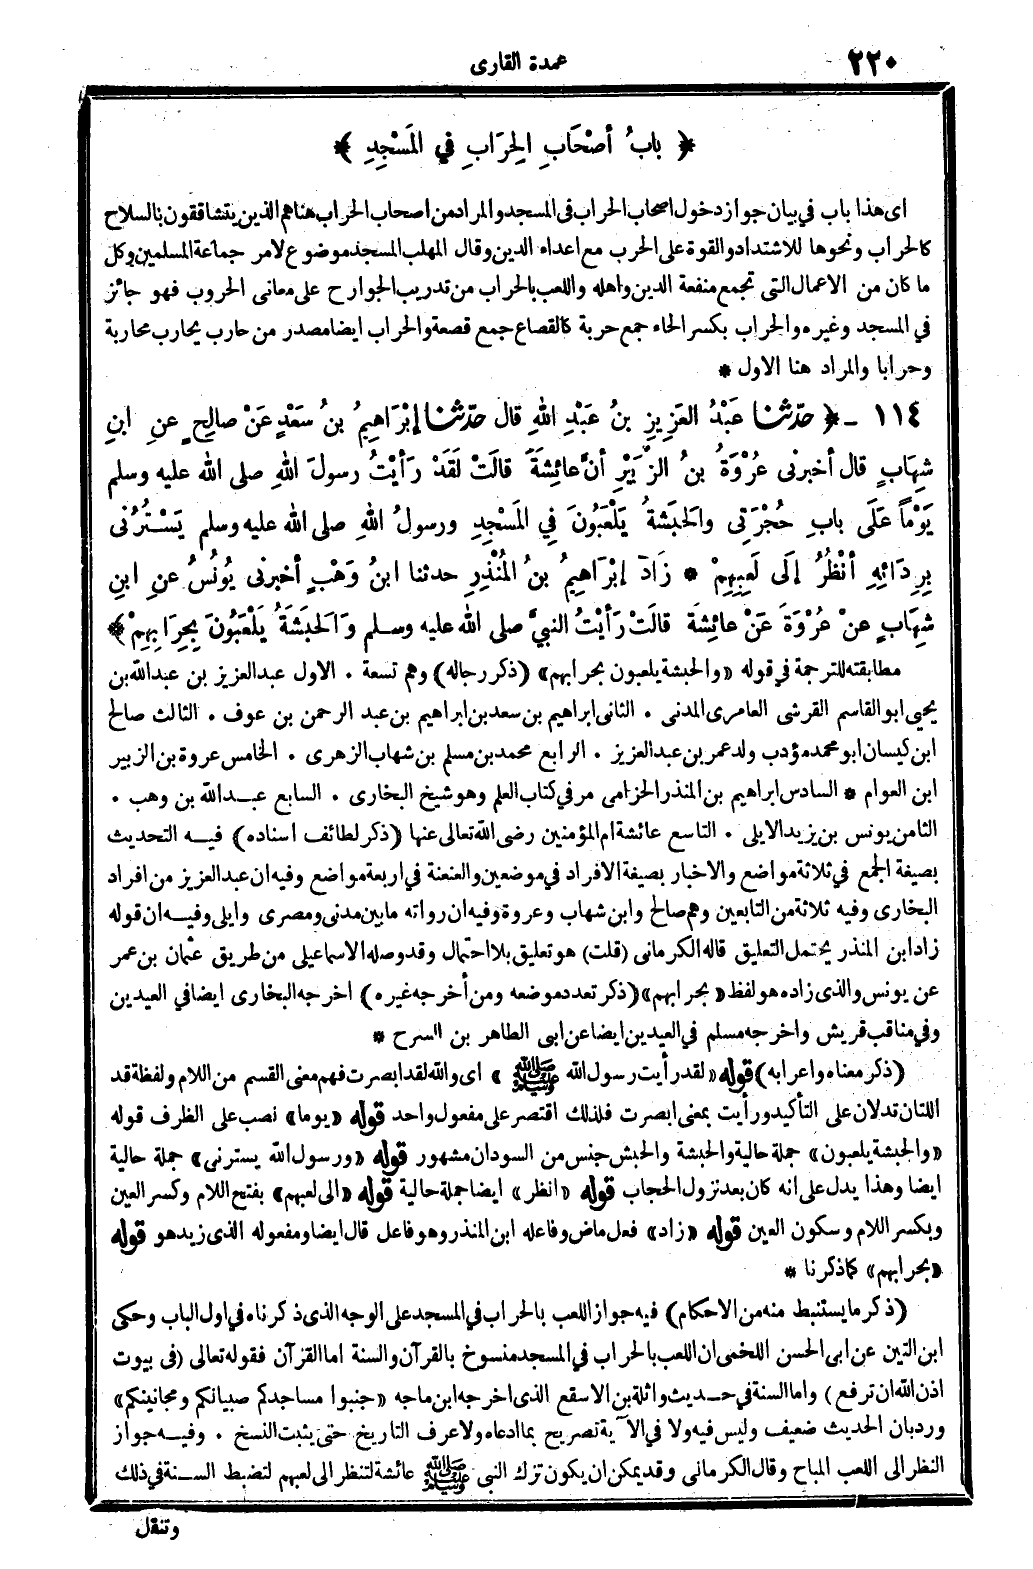 ٢٢٠
عمدة القارى
﴿ بابُ أصْحَابِ الحِرَابِ في المَسْجِدِ ﴾
اى هذا باب في بيان جواز دخول اصحاب الحراب فى المسجد والمراد من اصحاب الحراب هنا هم الذين يتشاققون بالسلاح
كالحراب ونحوها للاشتداد والقوة على الحرب مع اعداء الدين وقال المهلب المسجد موضوع لامر جماعة المسلمين وكل
ما كان من الاعمال التى تجمع منفعة الدين واهله واللعب بالحراب من تدريب الجوارح على معانى الحروب فهو جائز
في المسجد وغيره والحراب بكسر الحاء جمع حربة كالقصاع جمع قصعة والحراب ايضا مصدر من حارب يحارب محاربة
وحرابا والمراد هنا الاول *
١١٤ ـ ﴿ حدّثنا عَبْدُ العَزِيزِ بنُ عَبْدِ اللهِ قال حدّثنا إبْرَاهِيمُ بنُ سَعْدٍ عَنْ صالِحٍ عنِ ابنِ
شِهَابٍ قال أخبرنى عُرْوَةُ بنُ الزُّبَيْرِ أنَّ عائِشَةَ قالَتْ لَقَدْ رَأيْتُ رسولَ اللهِ صلى الله عليه وسلم
يَوْماً عَلَى بابِ حُجْرَتِى والحَبَشَةُ يَلْعَبُونَ فِي المَسْجِدِ ورسولُ اللهِ صلى الله عليه وسلم يَسْتُرُنى
بِرِدَائِهِ أنْظُرُ إلَى لَعِبِهِمْ * زَادَ إبْرَاهِيمُ بنُ المُنْذِرِ حدثنا ابنُ وَهْبٍ أخبرنى يُونُسُ عنِ ابنِ
شِهَابٍ عنْ عُرْوَةَ عَنْ عائِشَةَ قالَتْ رَأيْتُ النبيَّ صلى الله عليه وسلم وَالحَبَشَةُ يَلْعَبُونَ بِحِرَابِهِمْ ﴾
مطابقته للترجمة في قوله «والحبشة يلعبون بحرابهم» (ذكر رجاله) وهم تسعة . الاول عبد العزيز بن عبد الله بن
يحيى ابو القاسم القرشي العامرى المدنى . الثانى ابراهيم بن سعد بن ابراهيم بن عبد الرحمن بن عوف . الثالث صالح
ابن كيسان ابو محمد مؤدب ولد عمر بن عبد العزيز . الرابع محمد بن مسلم بن شهاب الزهرى . الخامس عروة بن الزبير
ابن العوام * السادس ابراهيم بن المنذر الحزامى مر في كتاب العلم وهو شيخ البخارى . السابع عبد الله بن وهب .
الثامن يونس بن يزيد الايلى . التاسع عائشة ام المؤمنين رضى الله تعالى عنها (ذكر لطائف اسناده) فيه التحديث
بصيغة الجمع في ثلاثة مواضع والاخبار بصيغة الافراد في موضعين والعنعنة في اربعة مواضع وفيه ان عبد العزيز من افراد
البخارى وفيه ثلاثة من التابعين وهم صالح وابن شهاب وعروة وفيه ان رواته ما بين مدنى ومصرى وايلى وفيه ان قوله
زاد ابن المنذر يحتمل التعليق قاله الكرمانى (قلت) هو تعليق بلا احتمال وقد وصله الاسماعيلى من طريق عثمان بن عمر
عن يونس والذى زاده هو لفظ «بحرابهم» (ذكر تعدد موضعه ومن أخرجه غيره) اخرجه البخارى ايضا في العيدين
وفي مناقب قريش واخرجه مسلم في العيدين ايضا عن ابى الطاهر بن السرح *
(ذكر معناه واعرابه) قوله «لقد رأيت رسول الله ﷺ» اى والله لقد ابصرت فهم معنى القسم من اللام ولفظة قد
اللتان تدلان على التأكيد ورأيت بمعنى ابصرت فلذلك اقتصر على مفعول واحد قوله «يوما» نصب على الظرف قوله
«والحبشة يلعبون» جملة حالية والحبشة والحبش جنس من السودان مشهور قوله «ورسول الله يسترنى» جملة حالية
ايضا وهذا يدل على انه كان بعد نزول الحجاب قوله «انظر» ايضا جملة حالية قوله «الى لعبهم» بفتح اللام وكسر العين
وبكسر اللام وسكون العين قوله «زاد» فعل ماض وفاعله ابن المنذر وهو فاعل قال ايضا ومفعوله الذى زيد هو قوله
«بحرابهم» كما ذكرنا *
(ذكر ما يستنبط منه من الاحكام) فيه جواز اللعب بالحراب في المسجد على الوجه الذى ذكرناه في اول الباب وحكى
ابن التين عن ابى الحسن اللخمى ان اللعب بالحراب في المسجد منسوخ بالقرآن والسنة اما القرآن فقوله تعالى (فى بيوت
اذن الله ان ترفع) واما السنة في حديث واثلة بن الاسقع الذى اخرجه ابن ماجه «جنبوا مساجدكم صبيانكم ومجانينكم»
ورد بان الحديث ضعيف وليس فيه ولا في الآية تصريح بما ادعاه ولا عرف التاريخ حتى يثبت النسخ . وفيه جواز
النظر الى اللعب المباح وقال الكرمانى وقد يمكن ان يكون ترك النبى ﷺ عائشة لتنظر الى لعبهم لتضبط السنة في ذلك
وتنقل